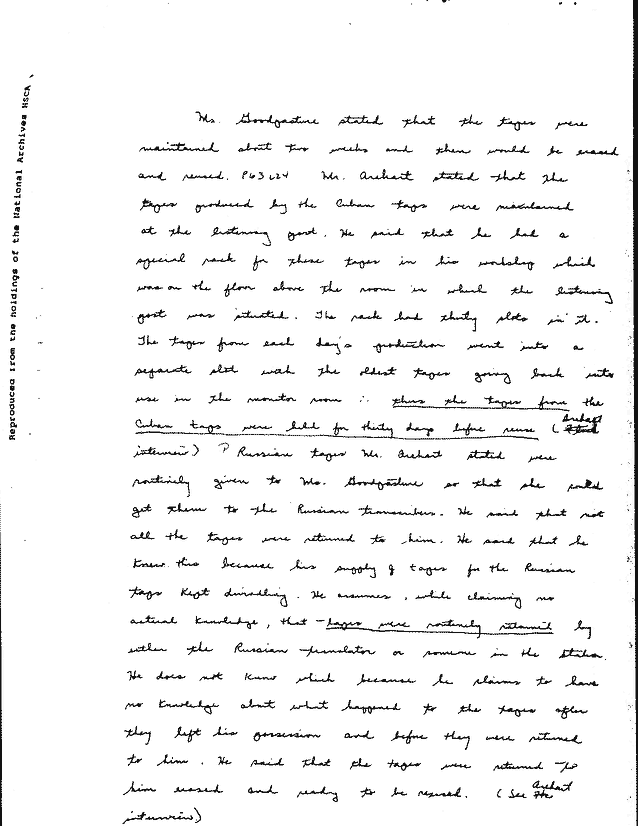 Reproduced from the holdings of the National Archives HSCA
Ms. Goodpasture stated that the tapes were
maintained about two weeks and then would be erased
and reused. P63 L24 Mr. Arehart stated that the
tapes produced by the Cuban taps were maintained
at the listening post. He said that he had a
special rack for these tapes in his workshop which
was on the floor above the room in which the listening
post was situated. The rack had thirty slots in it.
The tapes from each day's production went into a
separate slot with the oldest tapes going back into
use in the monitor room ∴ thus the tapes from the
Cuban taps were held for thirty days before reuse (Arehart
interview) Russian tapes Mr. Arehart stated were
routinely given to Ms. Goodpasture so that she could
get them to the Russian transcribers. He said that not
all the tapes were returned to him. He said that he
knew this because his supply of tapes for the Russian
taps kept dwindling. He assumes, while claiming no
actual knowledge, that tapes were routinely retained by
either the Russian translator or someone in the station.
He does not know which because he claims to have
no knowledge about what happened to the tapes after
they left his possession and before they were returned
to him. He said that the tapes were returned to
him erased and ready to be reused. (See Arehart
interview)